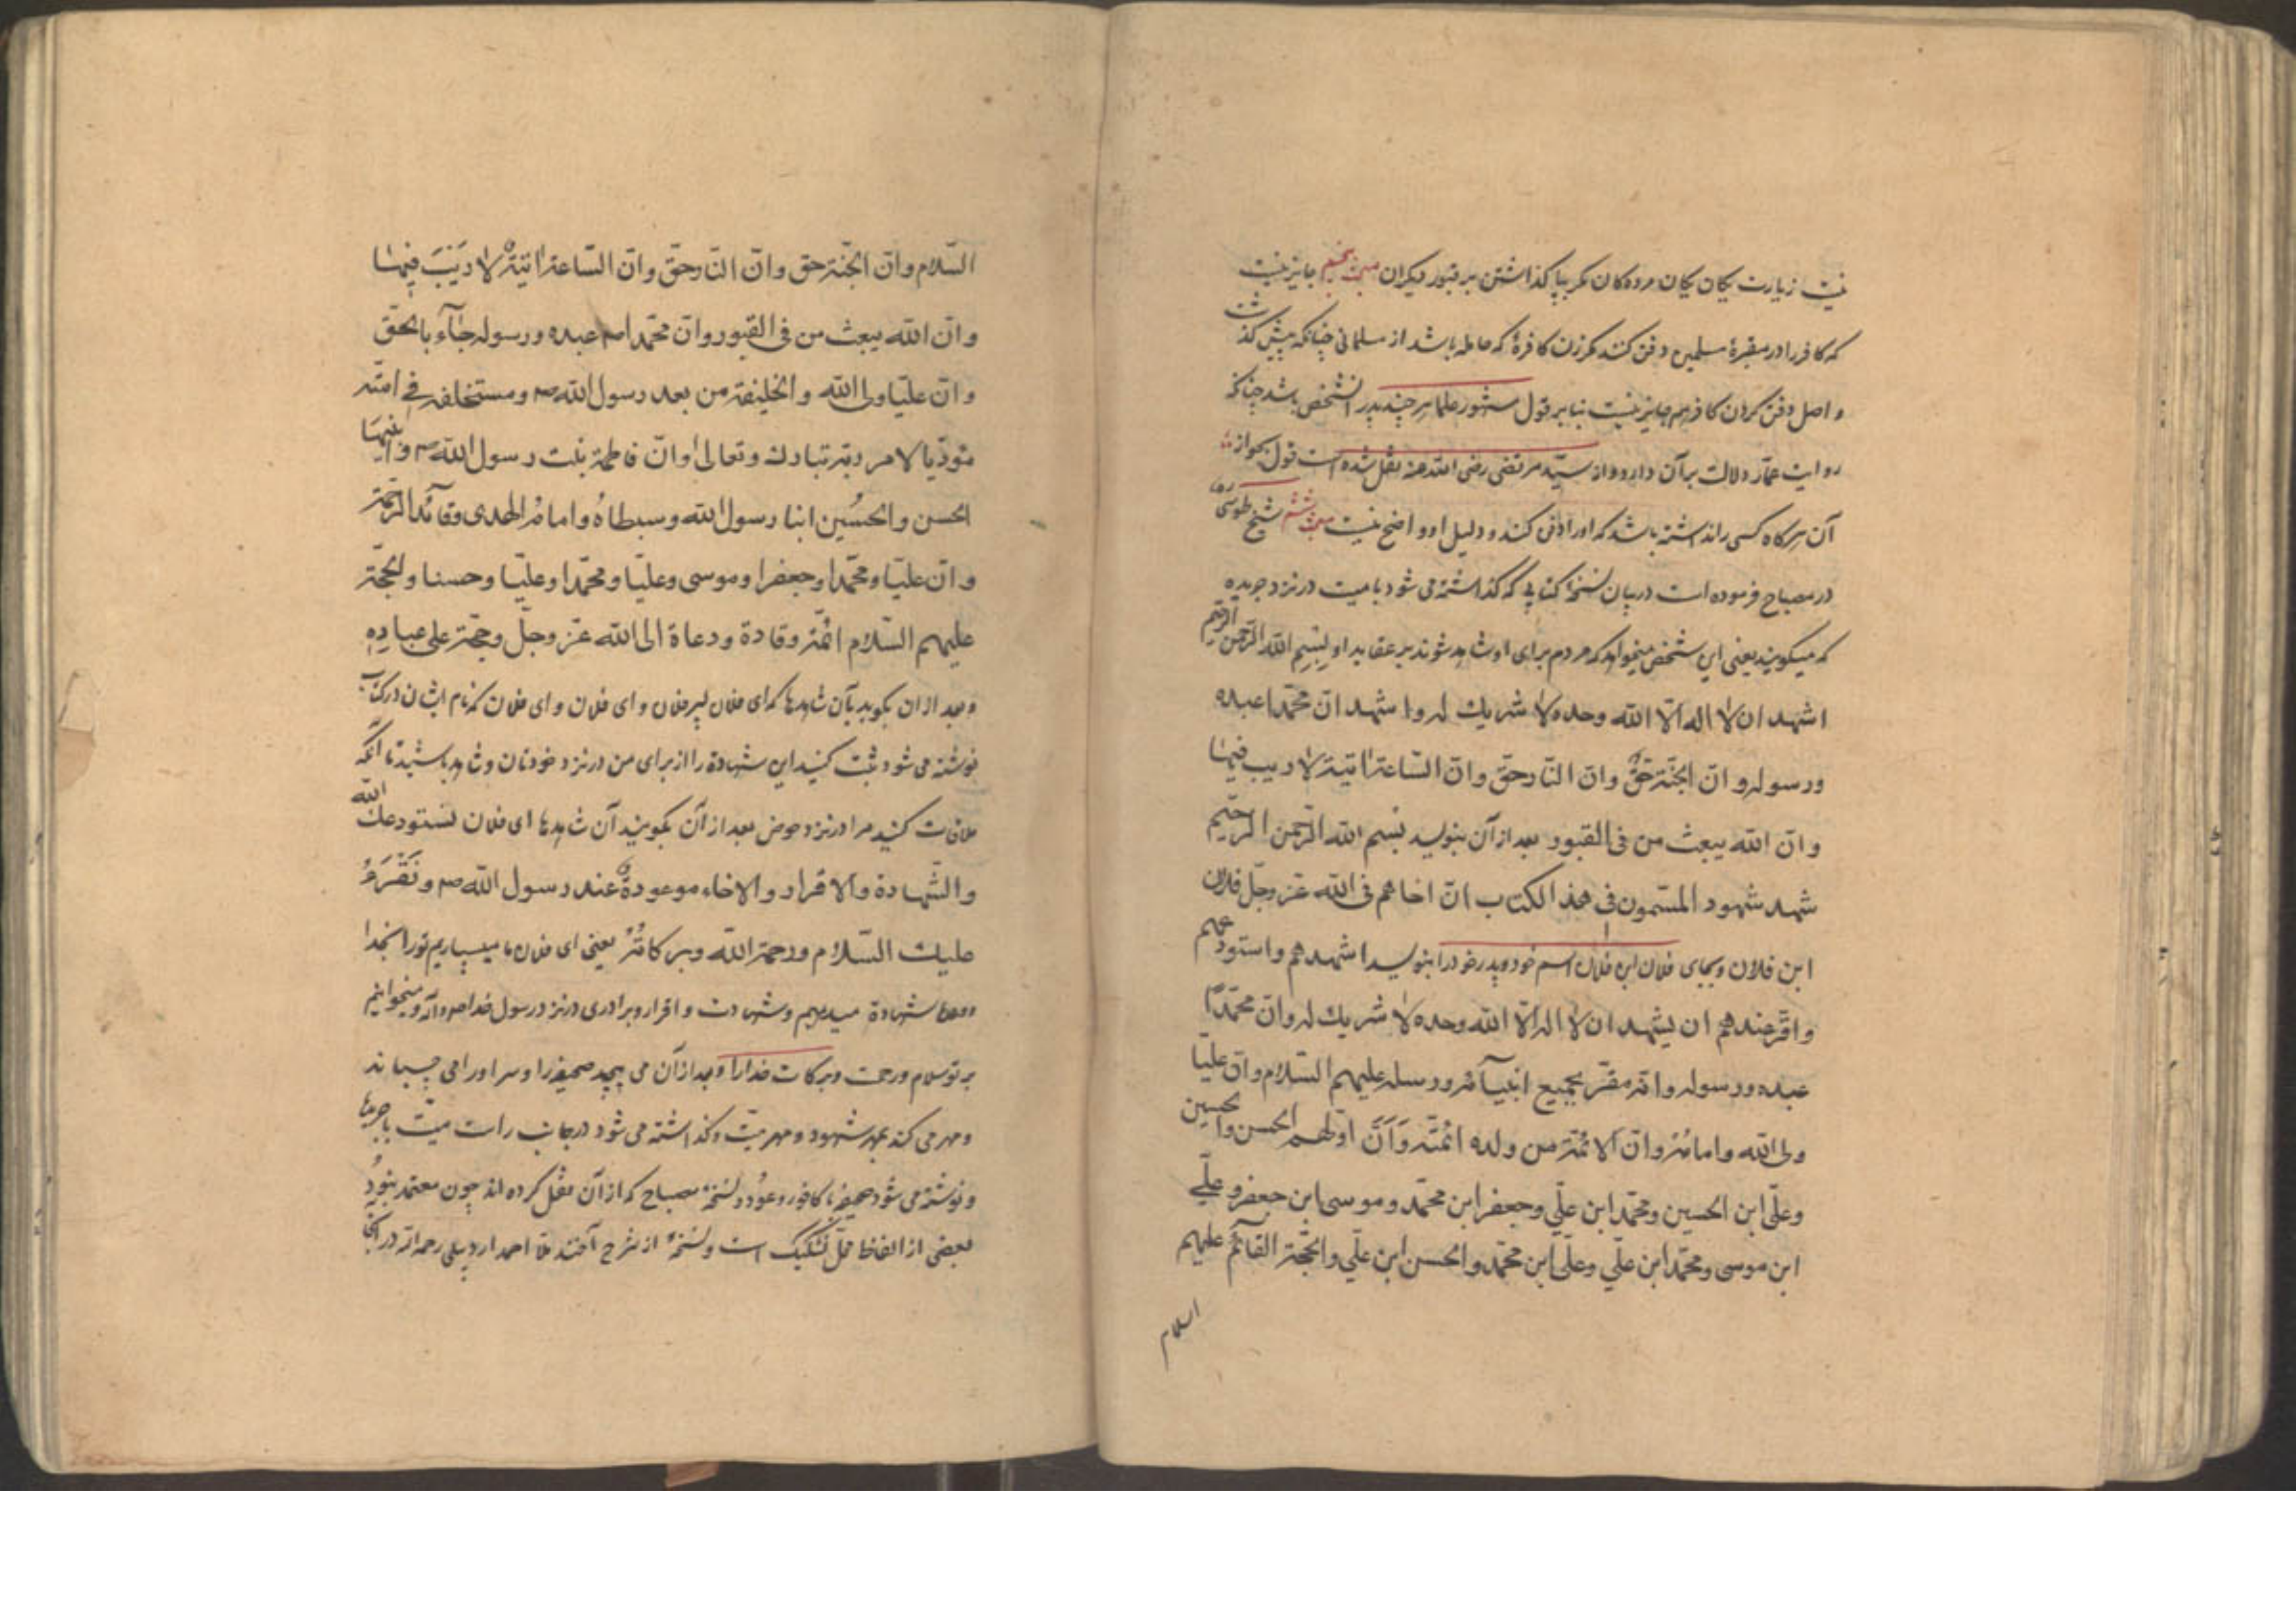 نیست زیارت یکان یکان مرده کان مکر بپا کذاشتن بر قبور دیکران مبحث پنجم جایز نیست
که کافر را در مقبرهٔ مسلمین دفن کنند مکر زن کافرهٔ که حامله باشد از مسلمانی چنانکه پیش کذشت
و اصل دفن کردن کافر هم جایز نیست بنا بر قول مشهور علما هر چند پدر آنشخص باشد چنانکه
روایت عمار دلالت بر آن دارد و از سید مرتضی رضی الله عنه نقل شده است قول بجواز
آن هرکاه کسی را نداشته باشد که او را دفن کند و دلیل او واضح نیست مبحث ششم شیخ طوسی ره
در مصباح فرموده است در بیان نسخهٔ کتابی که کذاشته می شود با میت در نزد جریده
که میکویند یعنی این شخص میخواهد که مردم برای او شاهد شوند بر عقاید او بسم الله الرحمن الرحیم
اشهد ان لا اله الّا الله وحده لا شریك له و اشهد انّ محمّدا عبده
ورسوله و انّ الجنّة حقٌّ وانّ النّار حقّ وانّ السّاعة اتیة لا ریب فیها
وانّ الله یبعث من فی القبور بعد از آن بنویسد بسم الله الرّحمن الرّحیم
شهد شهود المسمّون فی هذا الکتاب انّ اخاهم فی الله عزّ وجلّ فلان
ابن فلان و بجای فلان ابن فلان اسم خود و پدر خود را بنویسد اشهدهم واستودعهم
واقرّ عندهم ان یشهد ان لا اله الّا الله وحده لا شریك له وانّ محمّدًا
عبده ورسوله وانّه مقرّ بجمیع انبیآئه ورسله علیهم السّلام وانّ علیّا
ولی الله وامامُهُ وانّ الائمّة من ولده ائمّته وَاَنَّ اوّلهم الحسن والحسین
وعلّی ابن الحسین ومحمّد ابن علّی وجعفر ابن محمّد وموسی ابن جعفر وعلّی
ابن موسی ومحمّد ابن علّی وعلّی ابن محمّد والحسن ابن علّی والحجّة القآئم علیهم
السلام
السّلام وانّ الجنّة حق وانّ النّار حقّ وانّ السّاعة اتیةٌ لا رَیبَ فیها
وانّ الله یبعث من فی القبور وانّ محمّدا ص عبده ورسوله جآء بالحقّ
وانّ علیّا ولی الله والخلیفة من بعد رسول الله ص ومستخلفه فی امّته
مؤدّیا لامر ربّه تبارك وتعالی وانّ فاطمة بنت رسول الله ص وابنیها
الحسن والحُسین ابنا رسول الله وسبطاهُ واماما الهدی وقآئدا الرّحمة
وانّ علیّا ومحمّدا وجعفرا وموسی وعلیّا ومحمّدا وعلیّا وحسنا والحجّة
علیهم السّلام ائمّة وقادة ودعاة الی الله عزّ وجلّ وحجّة علی عبادِهِ
و بعد از ان بکوید بآن شاهدها که ای فلان پسر فلان و ای فلان و ای فلان که نام ایشان در کتاب
نوشته می شود ثبت کنید این شهادة را از برای من در نزد خودتان و شاهد باشید تا آنکه
ملاقات کنید مرا در نزد حوض بعد از آن بکویند آن شاهدها ای فلان نستودعك الله
والشّهادة والاقرار والاخاء موعودةٌ عند رسول الله ص ونَقْرَءُ
علیك السّلام ورحمة الله وبرکاتُهُ یعنی ای فلان ما میسپاریم تو را بخدا
شهادة میدهیم و شهادت و اقرار و برادری در نزد رسول خدا ص و آله و میخوانیم
بر تو سلام و رحمت و برکات خدا را و بعد از آن می پیچد صحیفه را و سر او را می چسپاند
و مهر می کند بمهر شهود و مهر میّت و کذاشته می شود در جانب راست میّت با جریدها
و نوشته می شود صحیفه با کافور و عُود و نسخهٔ مصباح که از آن نقل کرده اند چون معتمد نبُود
بعضی از الفاظ محلّ تشکیک است و نسخهٔ از شرح آخند ملّا احمد اردبیلی رحمه الله در آنجا